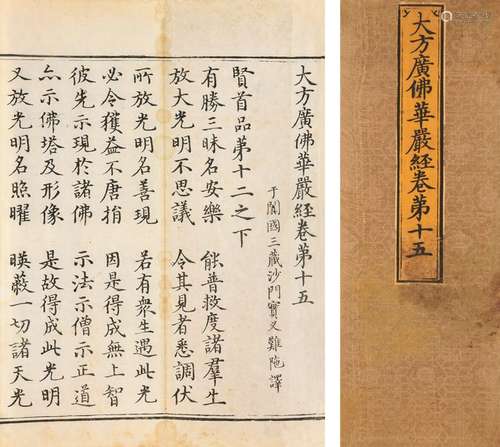 大方廣佛華嚴經卷第十五
大方廣佛華嚴經卷第十五
于闐國三藏沙門實叉難陁譯
賢首品第十二之下
有勝三昧名安樂 能普救度諸羣生
放大光明不思議 令其見者悉調伏
所放光明名善現 若有衆生遇此光
必令獲益不唐捐 因是得成無上智
彼先示現於諸佛 示法示僧示正道
亦示佛塔及形像 是故得成此光明
又放光明名照曜 暎蔽一切諸天光